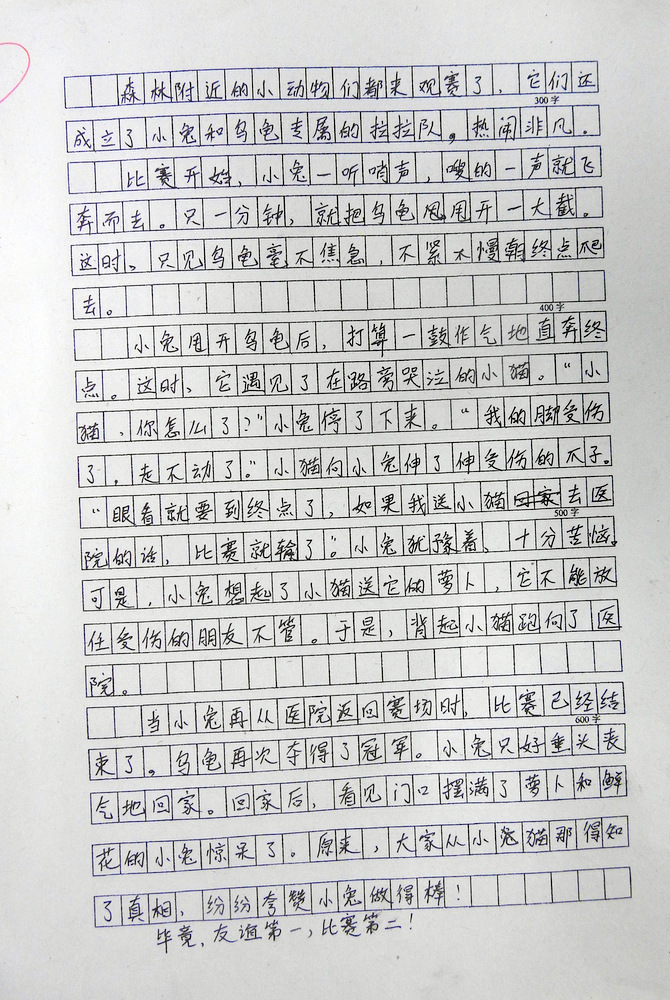 森林附近的小动物们都来观赛了，它们还
300字
成立了小兔和乌龟专属的拉拉队，热闹非凡。
比赛开始，小兔一听哨声，嗖的一声就飞
奔而去。只一分钟，就把乌龟甩甩开一大截。
这时，只见乌龟毫不焦急，不紧不慢朝终点爬
去。
400字
小兔甩开乌龟后，打算一鼓作气地直奔终
点。这时，它遇见了在路旁哭泣的小猫。“小
猫，你怎么了？”小兔停了下来。“我的脚受伤
了，走不动了。”小猫向小兔伸了伸受伤的爪子。
“眼看就要到终点了，如果我送小猫回家去医
500字
院的话，比赛就输了”。小兔犹豫着，十分苦恼。
可是，小兔想起了小猫送它的萝卜，它不能放
任受伤的朋友不管。于是，背起小猫跑向了医
院。
当小兔再从医院返回赛场时，比赛已经结
600字
束了。乌龟再次夺得了冠军。小兔只好垂头丧
气地回家。回家后，看见门口摆满了萝卜和鲜
花的小兔惊呆了。原来，大家从小猫那得知
了真相，纷纷夸赞小兔做得棒！
毕竟，友谊第一，比赛第二！